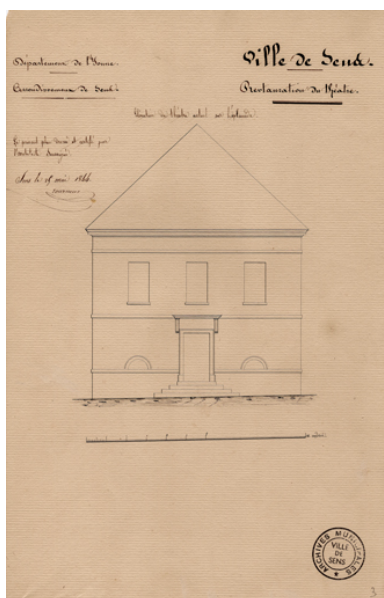 Département de l'Yonne.
Arrondissement de Sens.
Ville de Sens.
Restauration du théâtre.
Élévation du théâtre actuel sur l'esplanade.
Le présent plan dressé et certifié par
l'architecte soussigné.
Sens le 15 mai 1866.
ARCHIVES MUNICIPALES
VILLE
DE
SENS
3